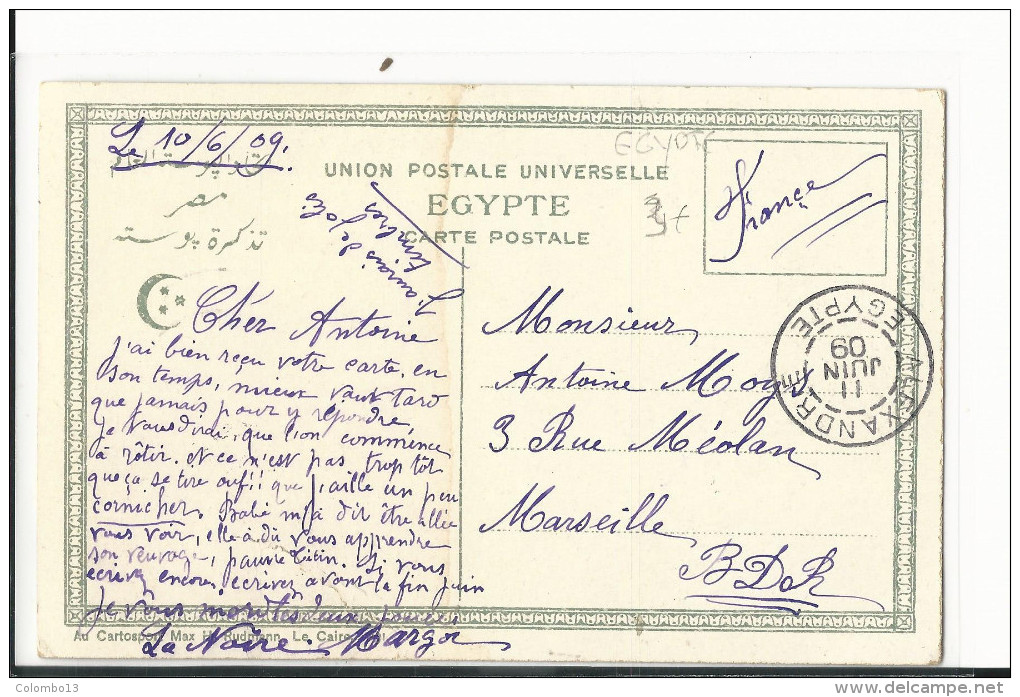 Le 10/6/09.
EGYPTE
UNION POSTALE UNIVERSELLE
EGYPTE
CARTE POSTALE
مصر
تذكرة بوسته
France
J'aurais de jolis timbres
ALEXANDRIE
11
JUIN
09
EGYPTE
Cher Antoine
J'ai bien reçu votre carte, en
son temps, mieux vaut tard
que jamais pour y répondre,
Je vous dirai, que l'on commence
à rôtir. et ce n'est pas trop tôt
que ça se tire ouf!! que j'aille un peu
cornicher. m'a dit être allée
vous voir, elle a dû vous apprendre
son veuvage, pauvre Titin. Si vous
écrivez encore, écrivez avant la fin juin
Je vous
La Noire Margot
Monsieur
Antoine
3 Rue Méolan
Marseille
BDR
Au Cartosport Max H. Rudmann, Le Caire
Colombo13
www.delcampe.net